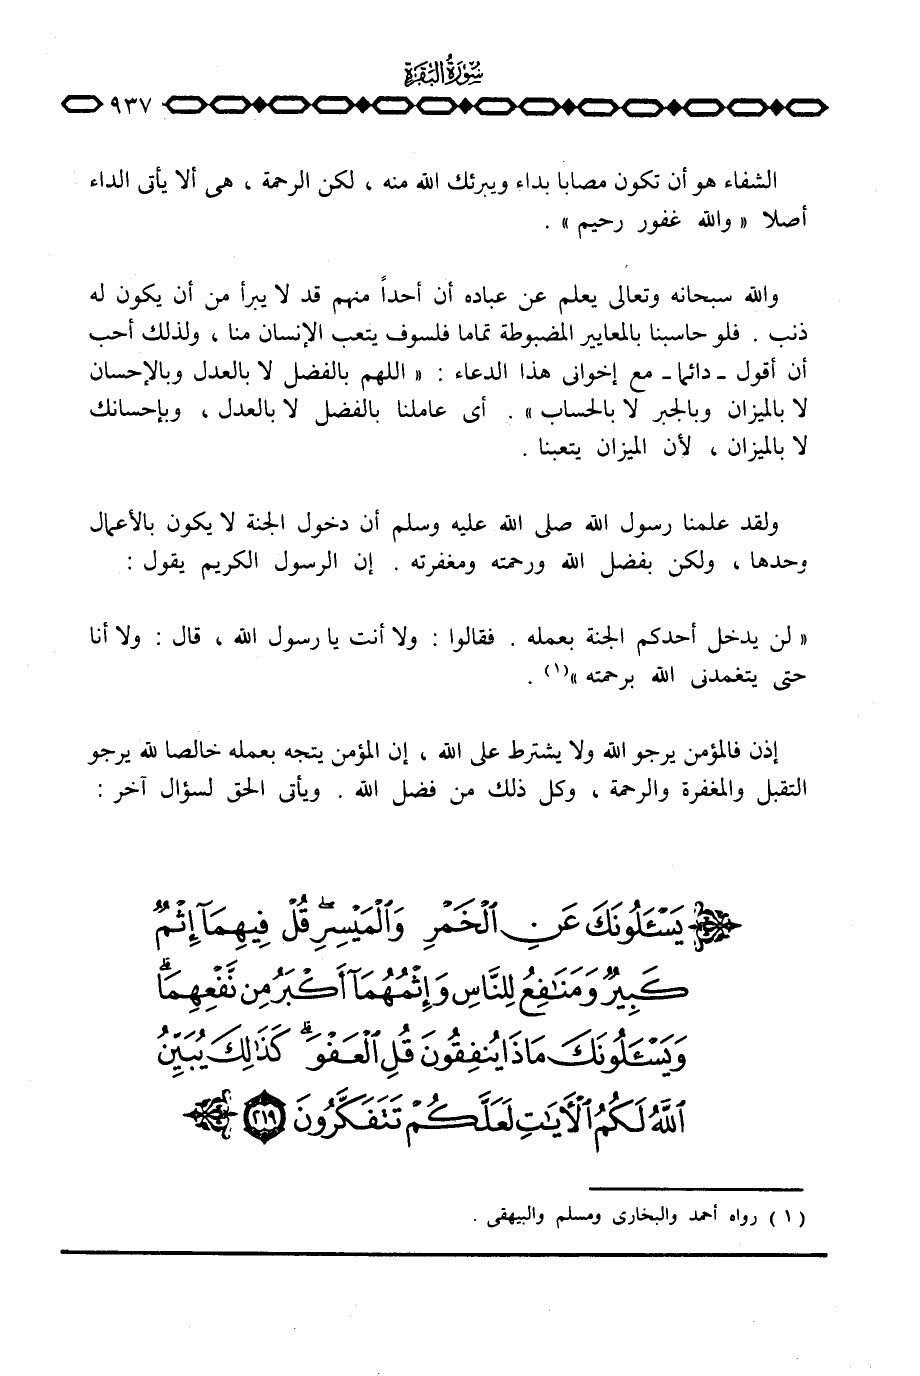 سورة البقرة
٩٣٧
الشفاء هو أن تكون مصابا بداء ويبرئك الله منه ، لكن الرحمة ، هى ألا يأتى الداء
أصلا « والله غفور رحيم » .
والله سبحانه وتعالى يعلم عن عباده أن أحداً منهم قد لا يبرأ من أن يكون له
ذنب . فلو حاسبنا بالمعايير المضبوطة تماما فلسوف يتعب الإنسان منا ، ولذلك أحب
أن أقول ـ دائما ـ مع إخوانى هذا الدعاء : « اللهم بالفضل لا بالعدل وبالإحسان
لا بالميزان وبالجبر لا بالحساب » . أى عاملنا بالفضل لا بالعدل ، وبإحسانك
لا بالميزان ، لأن الميزان يتعبنا .
ولقد علمنا رسول الله صلى الله عليه وسلم أن دخول الجنة لا يكون بالأعمال
وحدها ، ولكن بفضل الله ورحمته ومغفرته . إن الرسول الكريم يقول :
« لن يدخل أحدكم الجنة بعمله . فقالوا : ولا أنت يا رسول الله ، قال : ولا أنا
حتى يتغمدنى الله برحمته »(١) .
إذن فالمؤمن يرجو الله ولا يشترط على الله ، إن المؤمن يتجه بعمله خالصا لله يرجو
التقبل والمغفرة والرحمة ، وكل ذلك من فضل الله . ويأتى الحق لسؤال آخر :
يَسْـَٔلُونَكَ عَنِ ٱلْخَمْرِ وَٱلْمَيْسِرِۖ قُلْ فِيهِمَآ إِثْمٌ
كَبِيرٌ وَمَنَٰفِعُ لِلنَّاسِ وَإِثْمُهُمَآ أَكْبَرُ مِن نَّفْعِهِمَاۗ
وَيَسْـَٔلُونَكَ مَاذَا يُنفِقُونَ قُلِ ٱلْعَفْوَۗ كَذَٰلِكَ يُبَيِّنُ
ٱللَّهُ لَكُمُ ٱلْأَيَٰتِ لَعَلَّكُمْ تَتَفَكَّرُونَ ٢١٩
( ١ ) رواه أحمد والبخارى ومسلم والبيهقى .